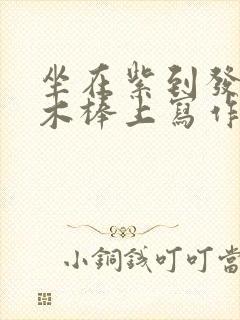 坐在紫到發
木棒上寫作
小銅錢叮叮當